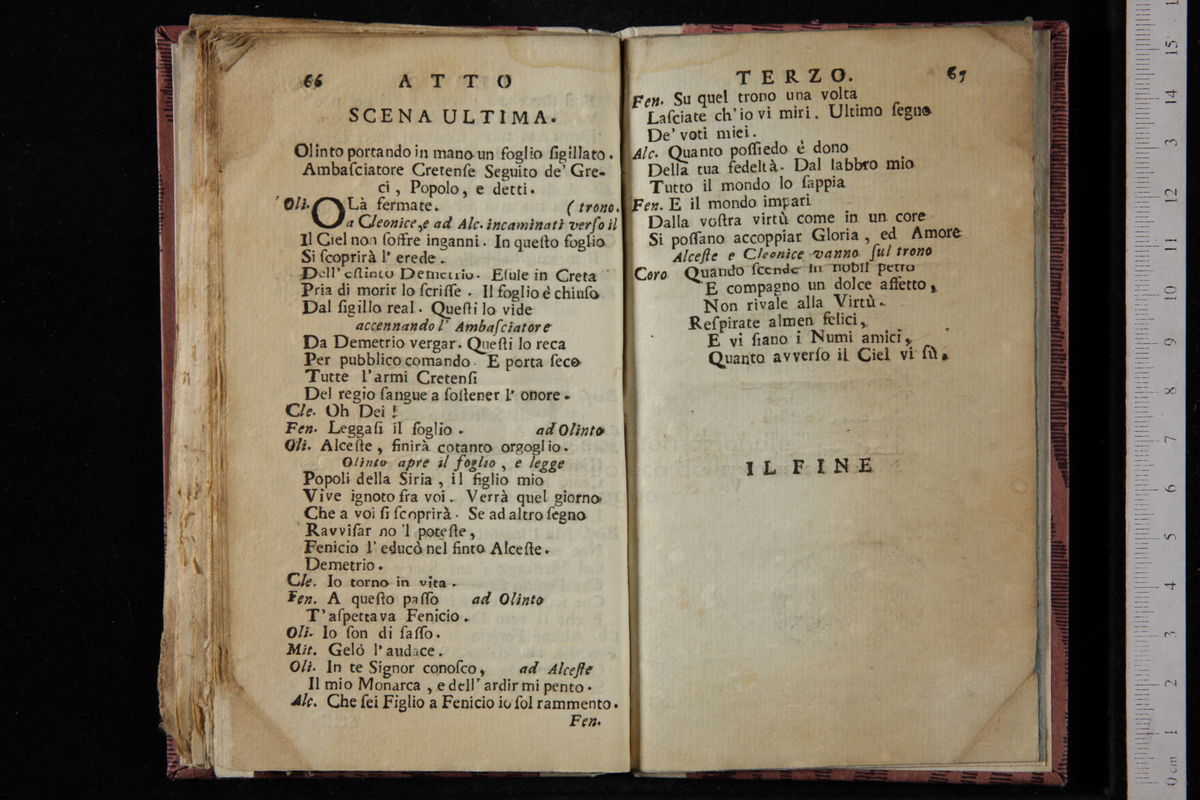 66 ATTO
SCENA ULTIMA.
Olinto portando in mano un foglio ſigillato.
Ambaſciatore Cretenſe Seguito de' Gre-
ci, Popolo, e detti.
Oli. OLà fermate. (trono.
a Cleonice, e ad Alc. incaminati verſo il
Il Ciel non ſoffre inganni. In queſto foglio
Si ſcoprirà l'erede.
Dell'eſtinto Demetrio. Eſule in Creta
Pria di morir lo ſcriſſe. Il foglio è chiuſo
Dal ſigillo real. Queſti lo vide
accennando l'Ambaſciatore
Da Demetrio vergar. Queſti lo reca
Per pubblico comando. E porta ſeco
Tutte l'armi Cretenſi
Del regio ſangue a ſoſtener l'onore.
Cle. Oh Dei!
Fen. Leggaſi il foglio. ad Olinto
Oli. Alceſte, finirà cotanto orgoglio.
Olinto apre il foglio, e legge
Popoli della Siria, il figlio mio
Vive ignoto fra voi. Verrà quel giorno
Che a voi ſi ſcoprirà. Se ad altro ſegno
Ravviſar no 'l poteſte,
Fenicio l'educò nel finto Alceſte.
Demetrio.
Cle. Io torno in vita.
Fen. A queſto paſſo ad Olinto
T'aſpettava Fenicio.
Oli. Io ſon di ſaſſo.
Mit. Gelò l'audace.
Oli. In te Signor conoſco, ad Alceſte
Il mio Monarca, e dell'ardir mi pento.
Alc. Che ſei Figlio a Fenicio io ſol rammento.
Fen.
TERZO. 67
Fen. Su quel trono una volta
Laſciate ch'io vi miri. Ultimo ſegno
De' voti miei.
Alc. Quanto poſſiedo è dono
Della tua fedeltà. Dal labbro mio
Tutto il mondo lo ſappia
Fen. E il mondo impari
Dalla voſtra virtù come in un core
Si poſſano accoppiar Gloria, ed Amore
Alceſte e Cleonice vanno ſul trono
Coro Quando ſcende in nobil petto
E compagno un dolce affetto,
Non rivale alla Virtù.
Reſpirate almen felici,
E vi ſiano i Numi amici,
Quanto avverſo il Ciel vi fù.
IL FINE
0 cm 1 2 3 4 5 6 7 8 9 10 11 12 3 14 15